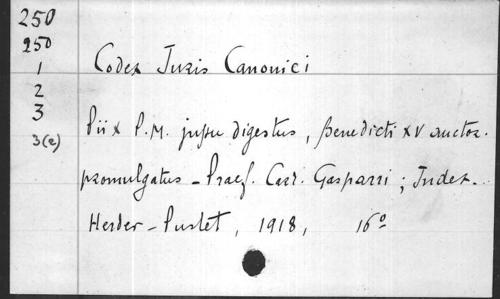 250
250
1
2
3
3(e)
Codex Juris Canonici
Pii X P.M. jussu digestus, Benedicti XV auctor.
promulgatus - Praef. Card. Gasparri; Index.
Herder - Pustet, 1918, 16º